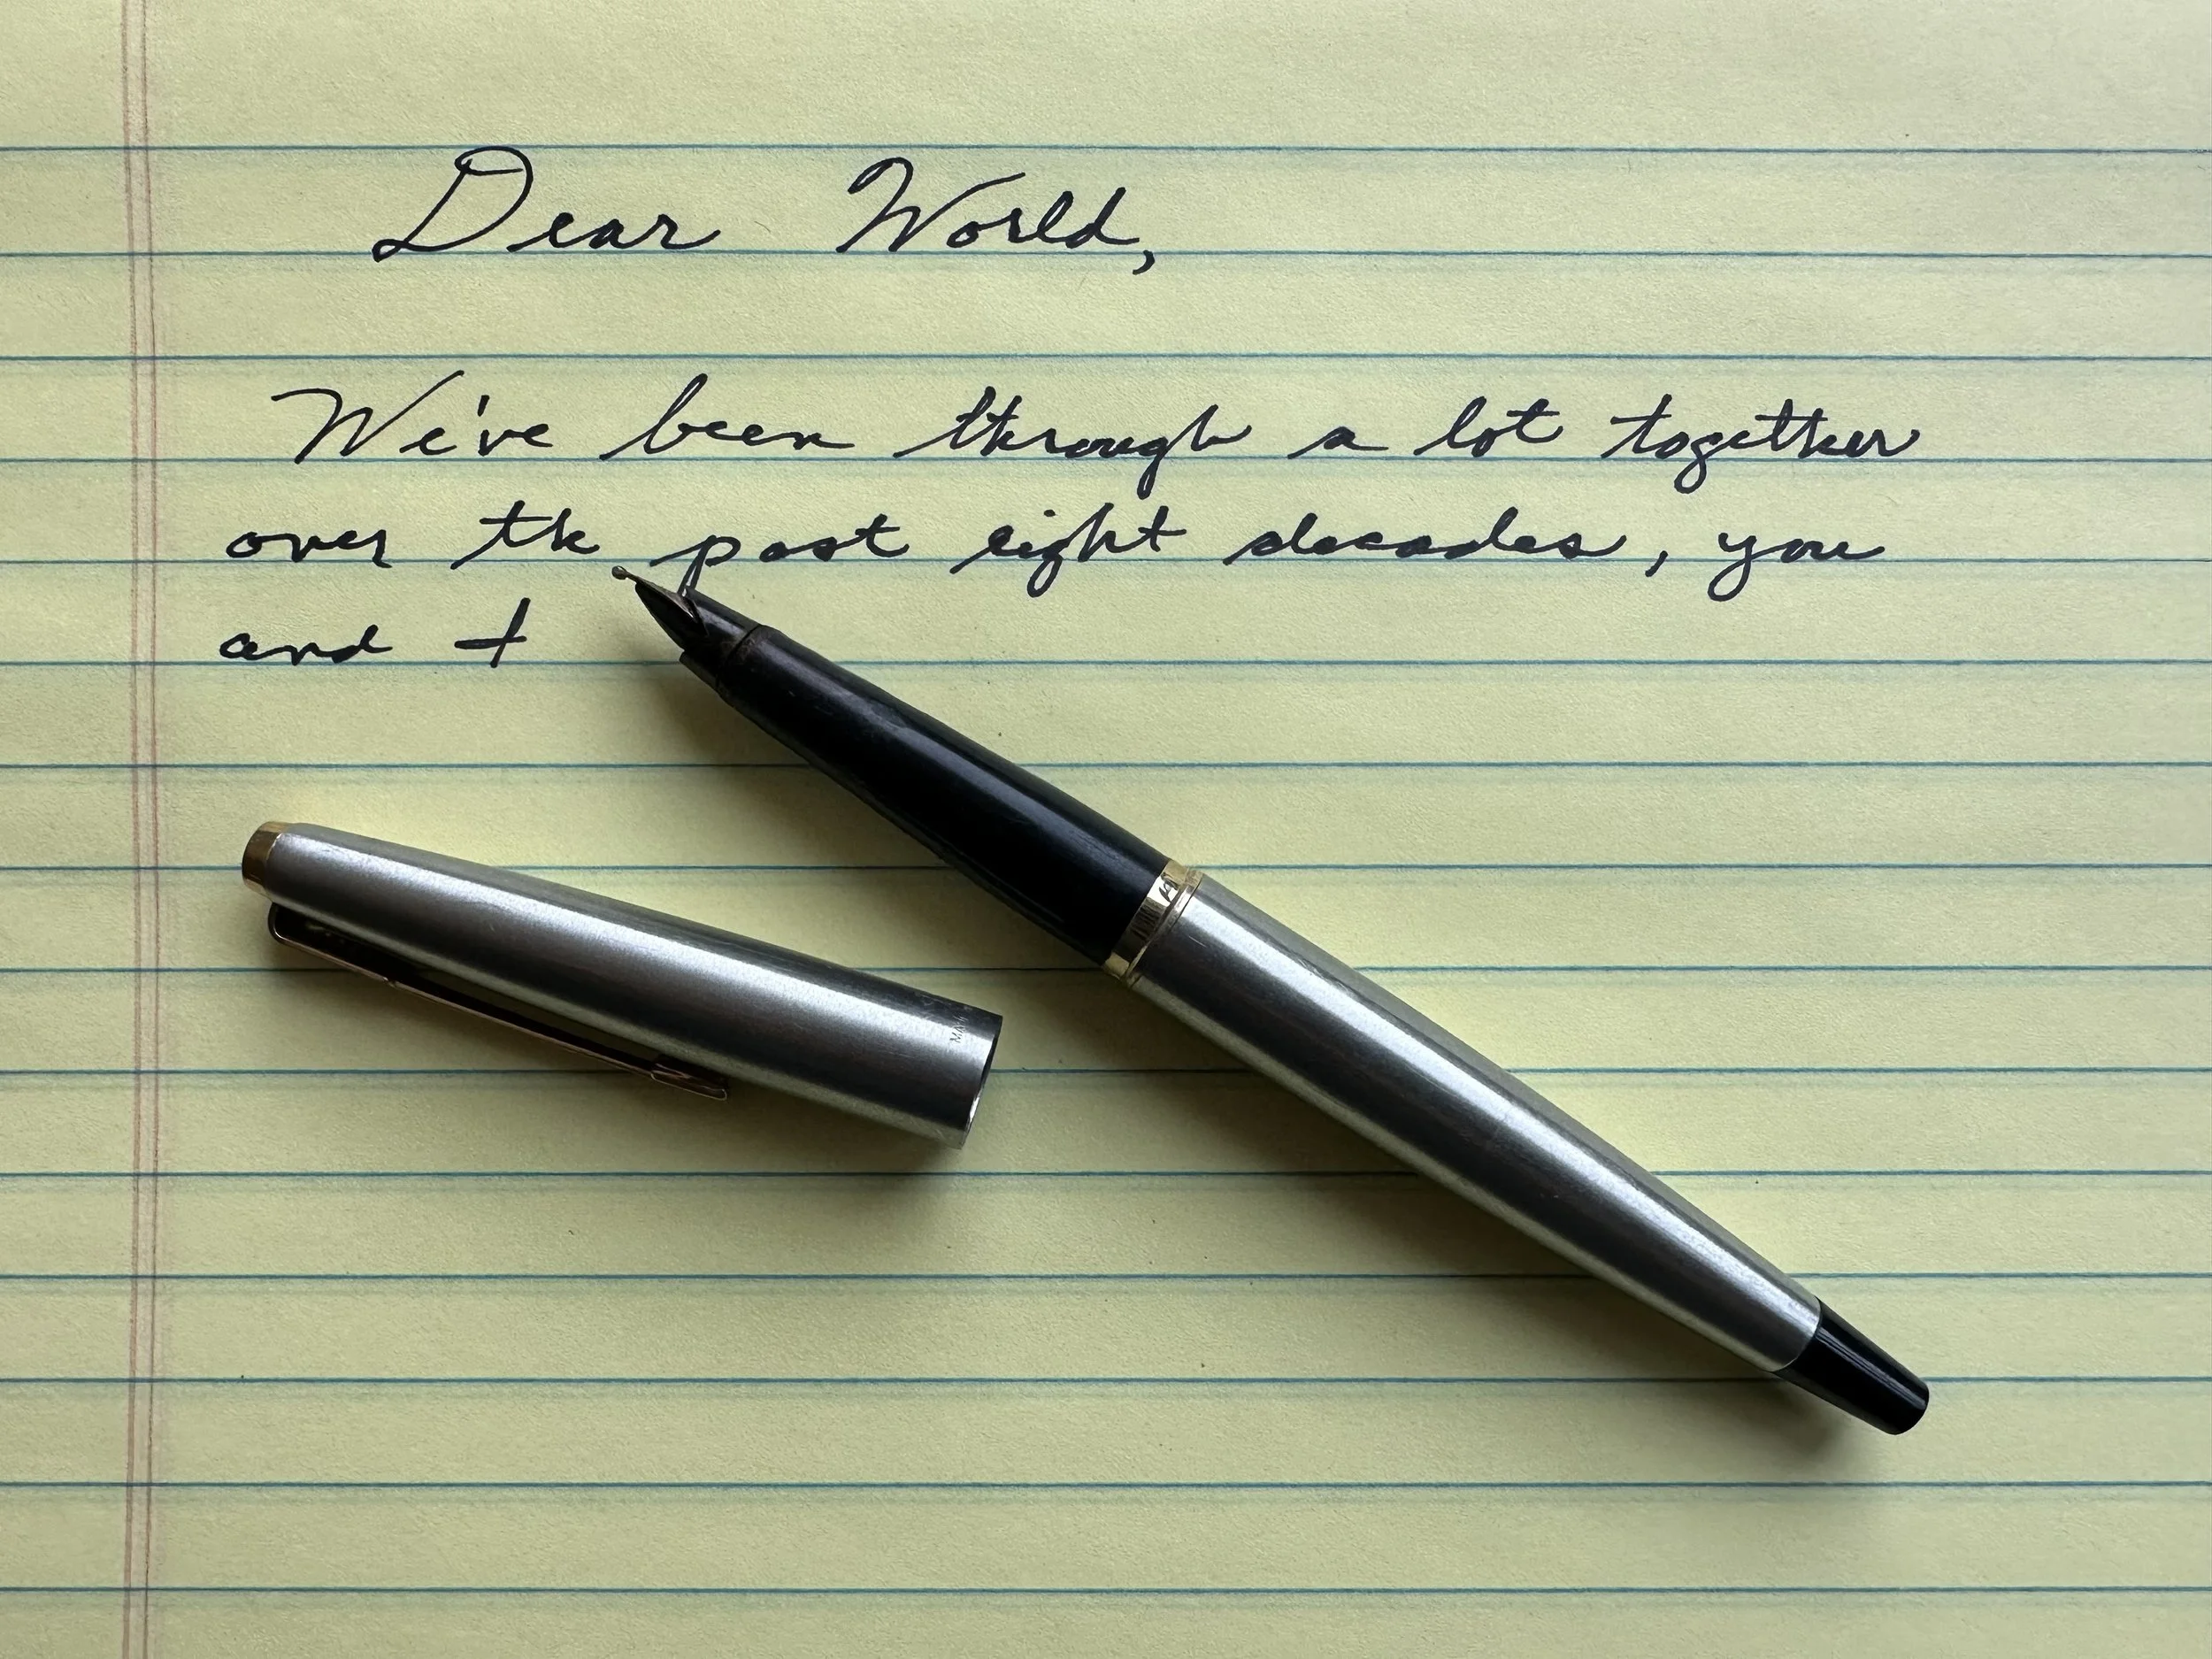 Dear World,
We've been through a lot together
over the past eight decades, you
and I